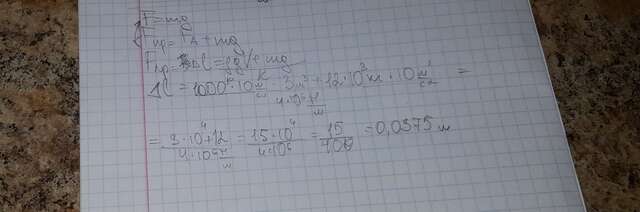 F = mg
Fпр = FA + mg
Fпр = ΔL = ρgV + mg
ΔL = 1000 · 10 м/с² 3 м³ + 12 · 10³ кг · 10 м/с² / 4 · 10⁶ Н/м =
= 3 · 10⁴ + 12 / 4 · 10⁶ Н/м = 15 · 10⁴ / 4 · 10⁶ = 15 / 400 = 0,0375 м